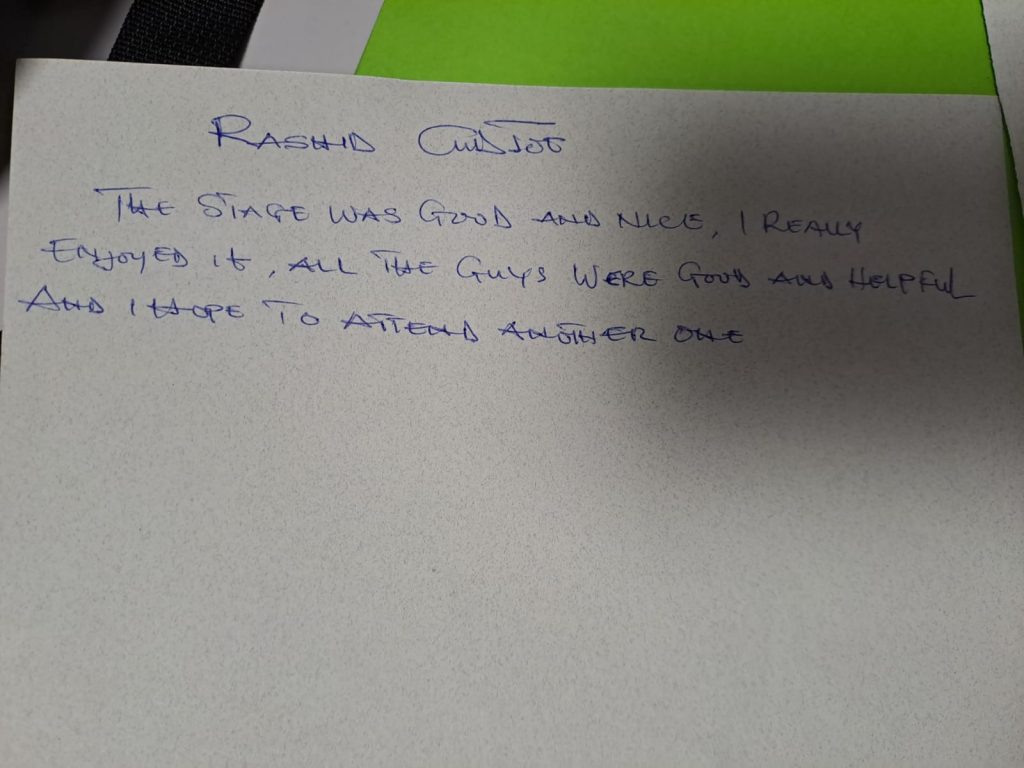 RASHID CUDJOE
THE STAGE WAS GOOD AND NICE, I REALLY
ENJOYED It, ALL THE GUYS WERE GOOD AND HELPFUL
AND I HOPE TO ATTEND ANOTHER ONE